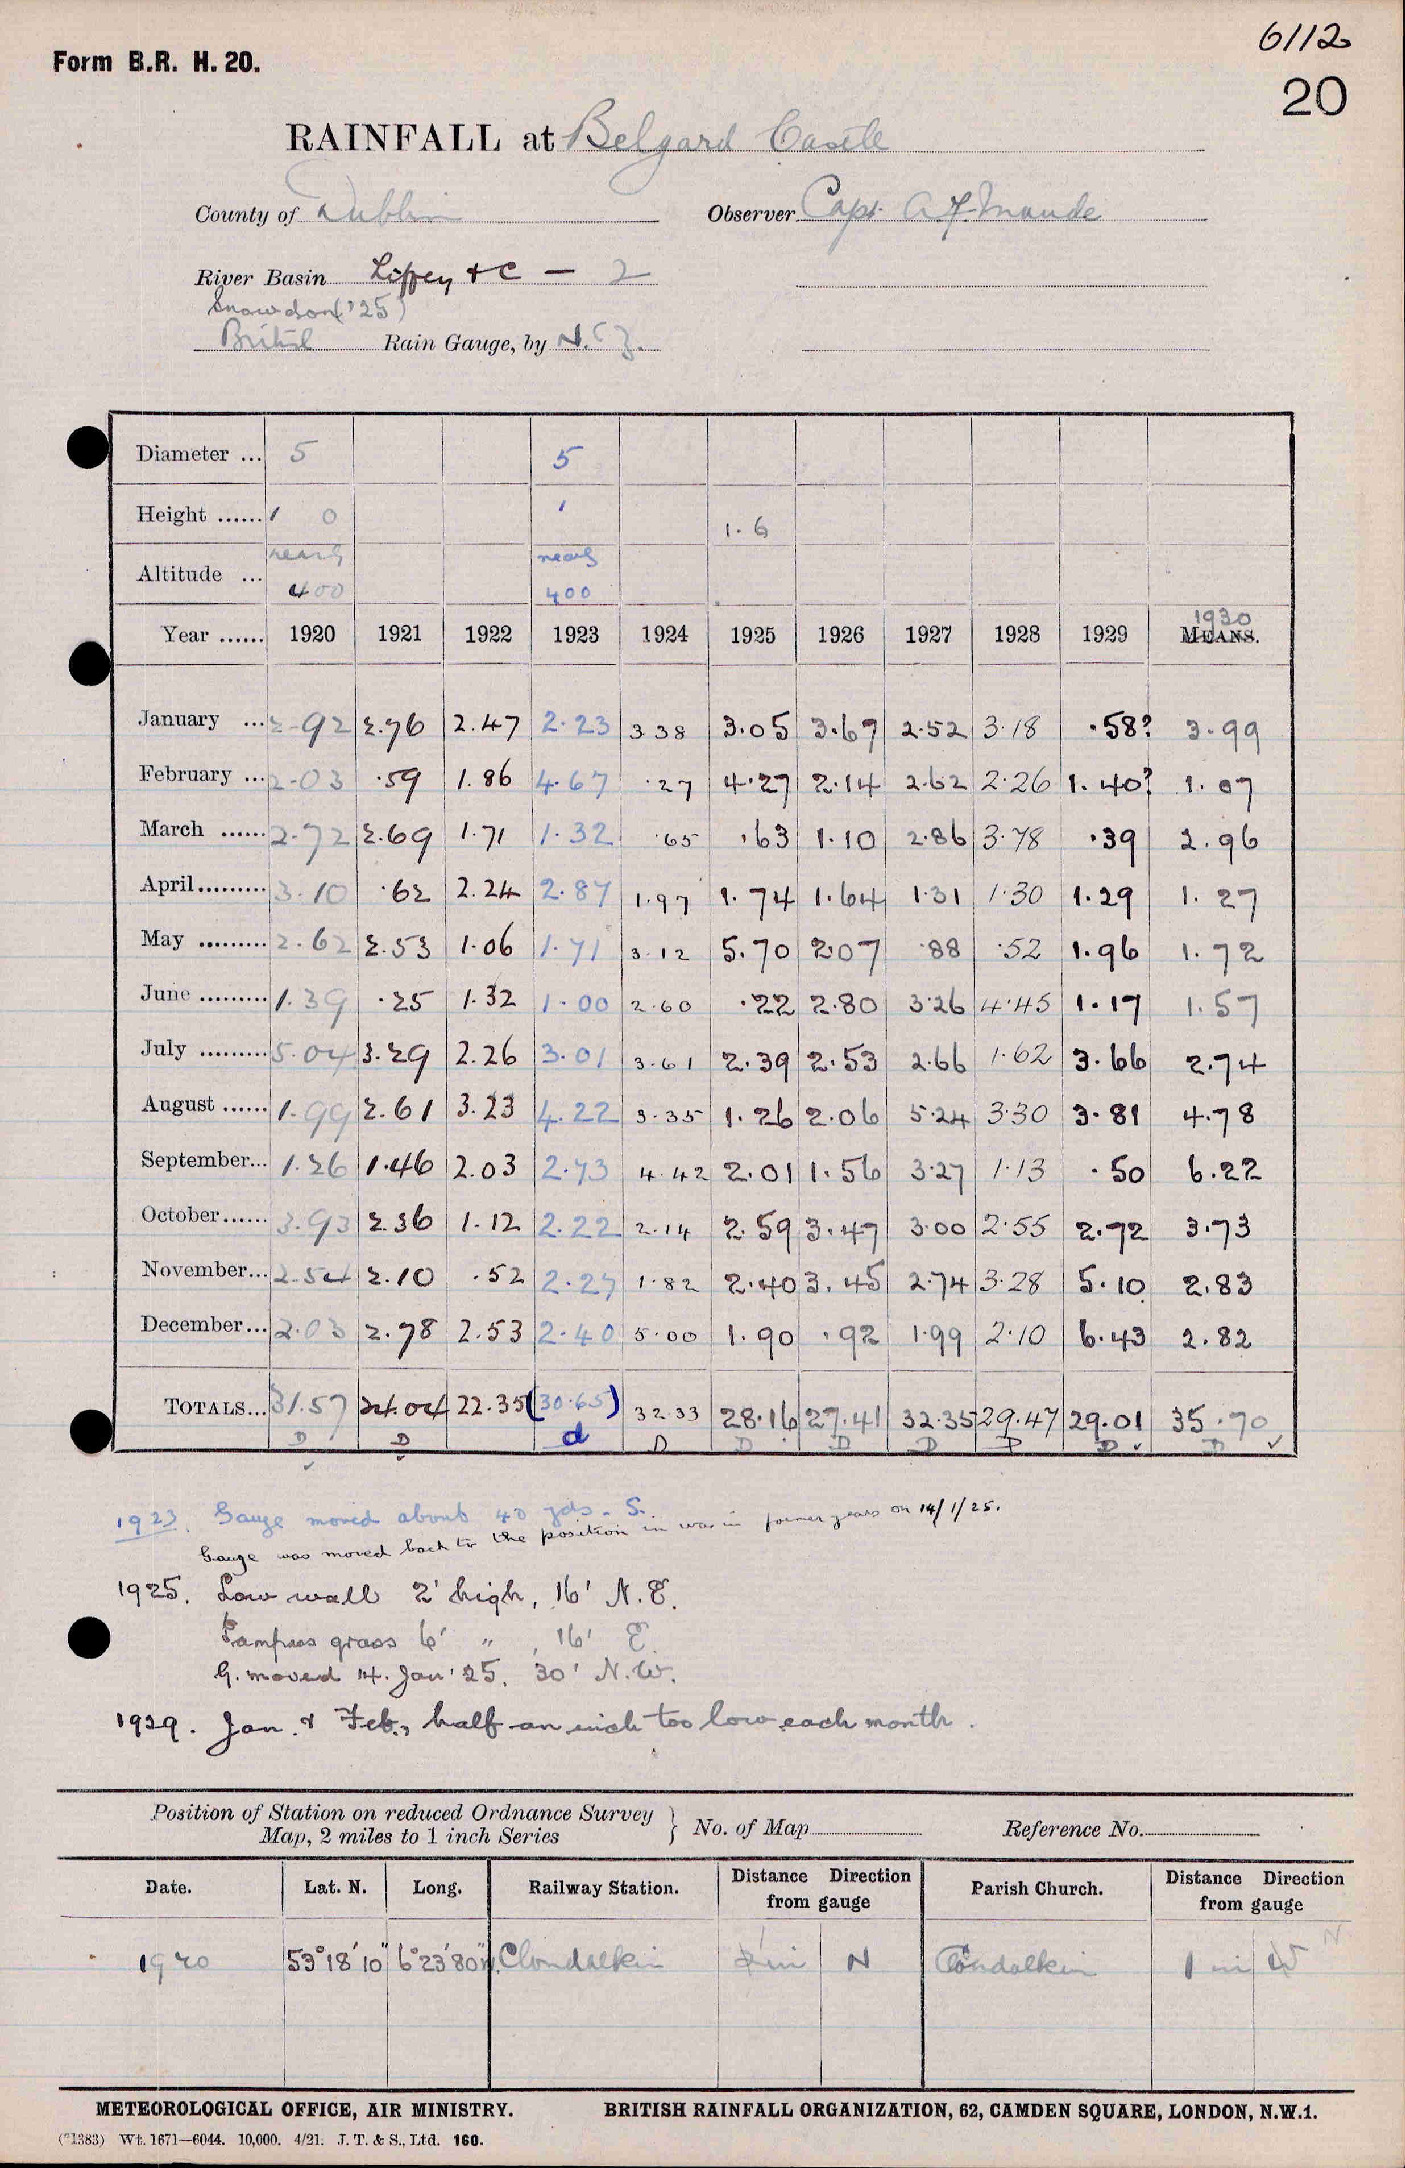 6112
Form B.R. H. 20.
20
RAINFALL at Belgard Castle
County of Dublin Observer Capt. A. F. Maude
River Basin Liffey + C — 2
Snowdon ('25)
British Rain Gauge, by N. & Z.
Diameter ... 5 5
Height ...... 1 0 1 1.6
Altitude ... nearly 400 nearly 400
1930
Year ...... 1920 1921 1922 1923 1924 1925 1926 1927 1928 1929 MEANS.
January ... 2.92 2.76 2.47 2.23 3 38 3.05 3.67 2.52 3.18 .58? 3.99
February ... 2.03 .59 1.86 4.67 .27 4.27 2.14 2.62 2.26 1.40? 1.07
March ...... 2.72 2.69 1.71 1.32 .65 .63 1.10 2.86 3.78 .39 2.96
April......... 3.10 .62 2.24 2.87 1.97 1.74 1.64 1.31 1.30 1.29 1.27
May ......... 2.62 2.53 1.06 1.71 3.12 5.70 2.07 .88 .52 1.96 1.72
June ......... 1.39 .25 1.32 1.00 2.60 .22 2.80 3.26 4.45 1.17 1.57
July ......... 5.04 3.29 2.26 3.01 3.61 2.39 2.53 2.66 1.62 3.66 2.74
August ...... 1.99 2.61 3.23 4.22 3.35 1.26 2.06 5.24 3.30 3.81 4.78
September... 1.26 1.46 2.03 2.73 4.42 2.01 1.56 3.27 1.13 .50 6.22
October...... 3.93 2.36 1.12 2.22 2.14 2.59 3.47 3.00 2.55 2.72 3.73
November... 2.54 2.10 .52 2.27 1.82 2.40 3.45 2.74 3.28 5.10 2.83
December... 2.03 2.78 2.53 2.40 5.00 1.90 .92 1.99 2.10 6.43 2.82
TOTALS... 31.57 24.04 22.35 (30.65) 32.33 28.16 27.41 32.35 29.47 29.01 35.70
D D d D D D D D D ✓ D ✓
✓
1923. Gauge moved about 40 yds. S.
Gauge was moved back to the position it was in in former years on 14/1/25.
1925. Low wall 2' high, 16' N.E.
Pampas grass 6' " , 16' E.
G. moved 14. Jan '25. 30' N.W.
1929. Jan. & Feb., half an inch too low each month.
Position of Station on reduced Ordnance Survey } No. of Map Reference No.
Map, 2 miles to 1 inch Series
Date. Lat. N. Long. Railway Station. Distance Direction from gauge Parish Church. Distance Direction from gauge
N
1920 53°18'10" 6°23'80"W. Clondalkin mi N Clondalkin 1 mi W
METEOROLOGICAL OFFICE, AIR MINISTRY. BRITISH RAINFALL ORGANIZATION, 62, CAMDEN SQUARE, LONDON, N.W.1.
(*1383) Wt. 1671—6044. 10,000. 4/21. J. T. & S., Ltd. 160.